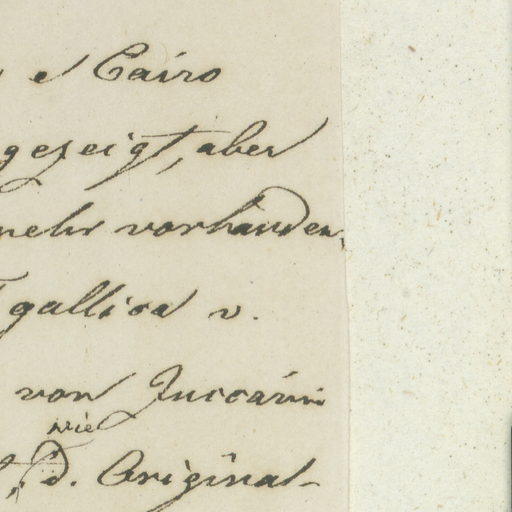 el Cairo
gezeigt, aber
mehr vorhanden,
gallica v.
von Zuccarini
wie
d. Original-